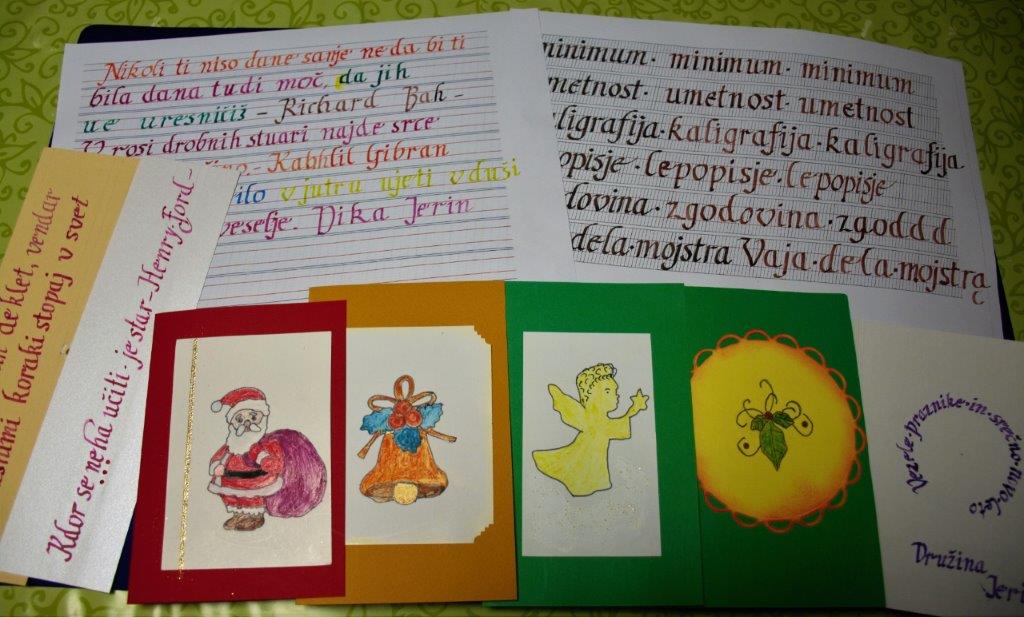 Nikoli ti niso dane sanje ne da bi ti
bila dana tudi moč, da jih
ue uresničiš - Richard Bah -
rosi drobnih stuari najde srce
- Kabhlil Gibran
ilo v jutru ujeti v duši
veselje. Vika Jerin
minimum · minimum · minimum
metnost · umetnost · umetnost
ligrafija · kaligrafija · kaligrafija
opisje · lepopisje · lepopisje
dovina · zgodovina · zgoddd
dela · mojstra Vaja · dela · mojstra
deklet, vendar
koraki stopaj v svet
Kdor se neha učiti je star - Henry Ford -
Vesele praznike in srečno novo leto
Družina
Jeri